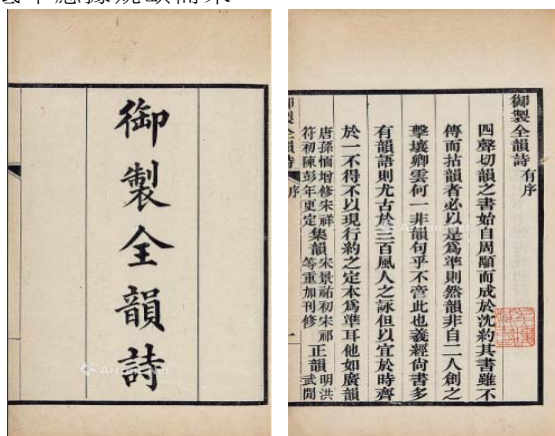 御製全韻詩
御製全韻詩有序
四聲切韻之書始自周顒而成於沈約其書雖不
傳而拈韻者必以是爲準則然韻非自二人創之
擊壤卿雲何一非韻句乎不啻此也羲經尚書多
有韻語則尤古於三百風人之詠但以宜於時齊
於一不得不以現行約之定本爲準耳他如廣韻
唐孫愐增修宋祥符初陳彭年更定集韻宋景祐初宋祁等重加刊修正韻明洪武間